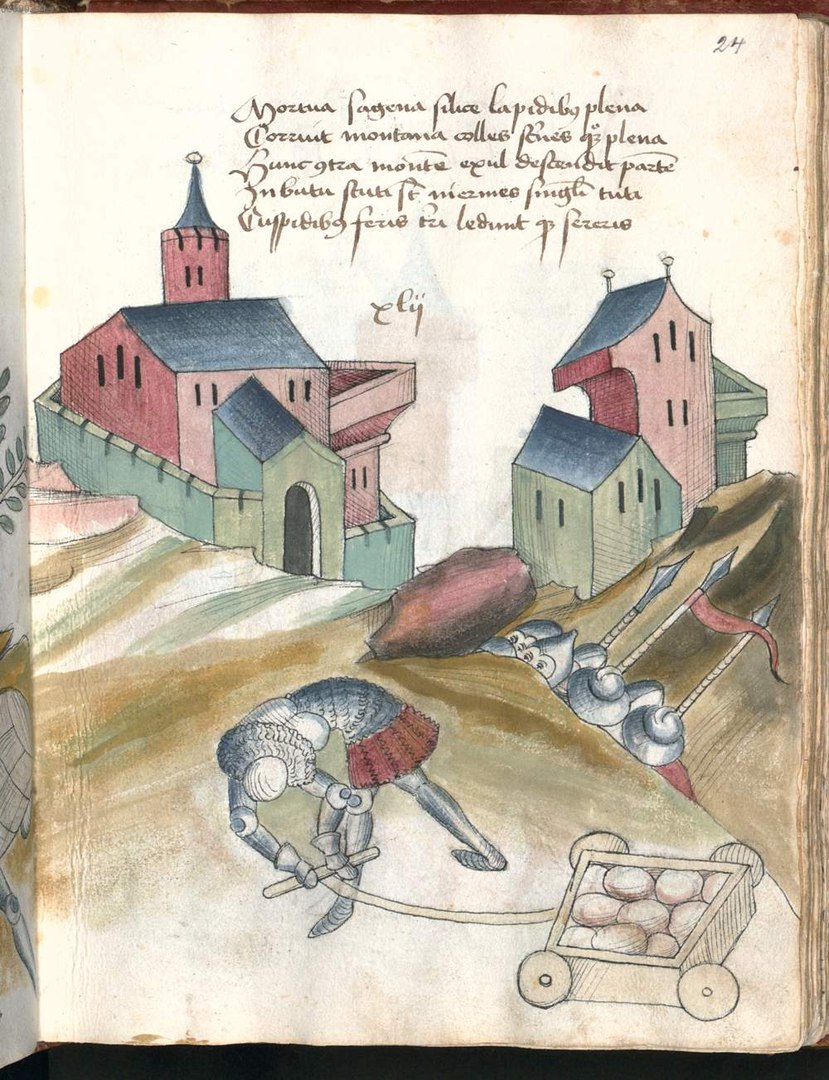 24
Mortua sagena silice lapidibꝰ plena
Corruit montana colles sternes qꝫ plena
Hunc ꝯtra monte exul descendit parte
In butu scuti st inermes singli tuti
Cuspidibꝰ feris tri ledunt qꝫ
xlij